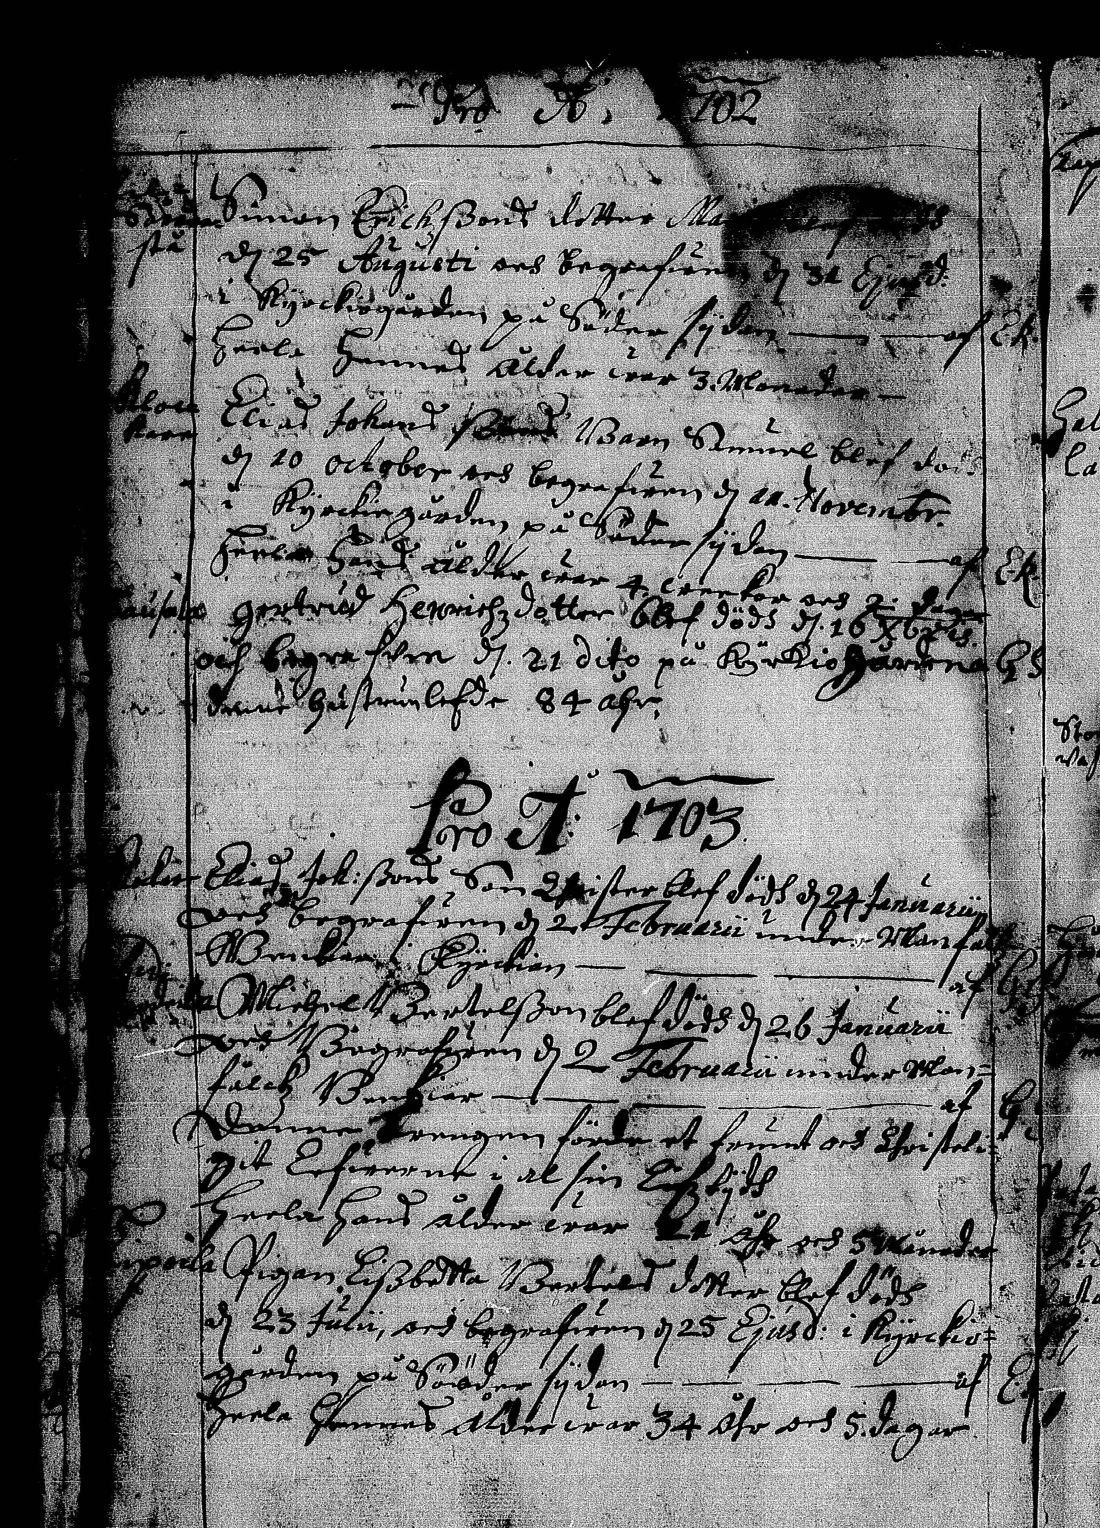 Pro A: 1702
Simon Erichßons dotter Ma
dn 25 Augusti och begrafwen dn 31 Ejusd:
i Kyrckiogården på Söder sijdan, — — af Ek.
heela hennes ålder war 3 Monader —
Elias Johans Barn Simuel blef döds
dn 10 october och begrafwen dn 11. Novembr.
i Kyrckiogården på Söder sijdan — — af Ek.
heela hans ålder war 4 weekor och 2: dagar
gertrud Henrichz dotter blef döds dn. 16 Xbris
och begrafven dn. 21 dito på kyrkiogårdena GS
denne hustrun lefde 84 ahr,
Pro A: 1703
Elias Joh:ßons Son Christer blef döds dn 24 Januarii
och begrafwen dn 2. Februarii under Manfalks
Benkiar i Kyrckian — — — — af GS
Michel Bertelßon blef döds dn 26 Januarii
och Begrafwen dn 2 Februarii under Man=
falcks Benkiar — — — — af G
Denne Drengen förde et fromt och Christeli=
git Lefwerne i al sin Lifztijds
heela hans ålder war 21 åhr och 5 Månader
Pigan Lißbetta Bertels dotter blef döds
dn 23 Julii, och begrafwen dn 25 Ejusd: i Kyrckio=
gården på Sööder sijdan — — — — af E
heela hennes ålder war 34 åhr och 5. dagar